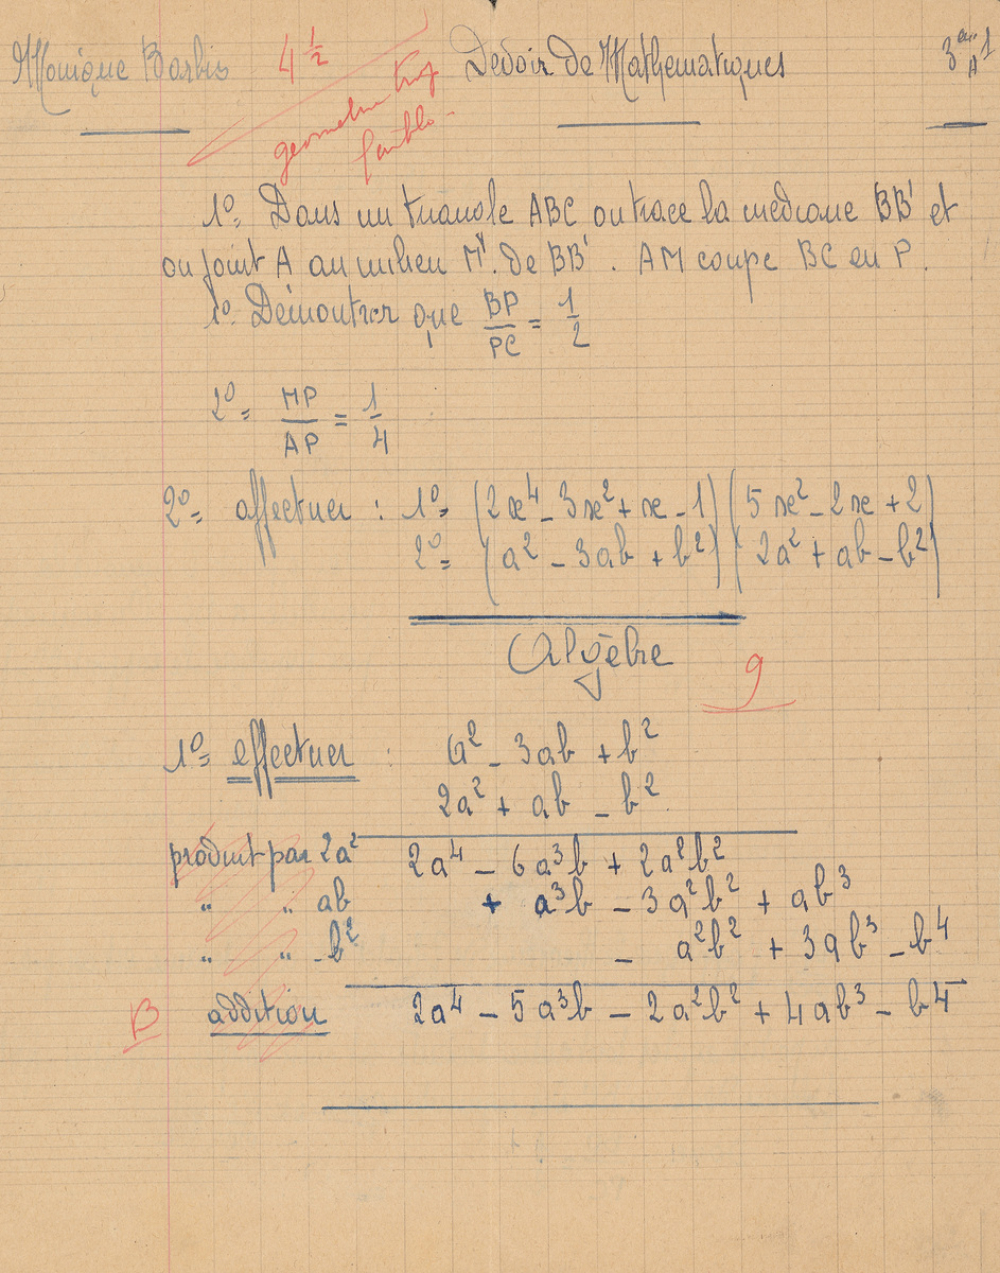 Monique Barbis 4 1/2 Devoir de Mathematiques 3ème A1
geometrie trop
faible
1º= Dans un triangle ABC on trace la mediane BB' et
on joint A au milieu M. de BB'. AM coupe BC en P.
1º. Démontrer que BP/PC = 1/2
2º= MP/AP = 1/4
2º= effectuer : 1º= (2x⁴ - 3x² + x - 1)(5x² - 2x + 2)
2º= (a² - 3ab + b²)(2a² + ab - b²)
Algèbre 9
1º= effectuer : a² - 3ab + b²
2a² + ab - b²
produit par 2a² 2a⁴ - 6a³b + 2a²b²
" " ab + a³b - 3a²b² + ab³
" " -b² - a²b² + 3ab³ - b⁴
B addition 2a⁴ - 5a³b - 2a²b² + 4ab³ - b⁴